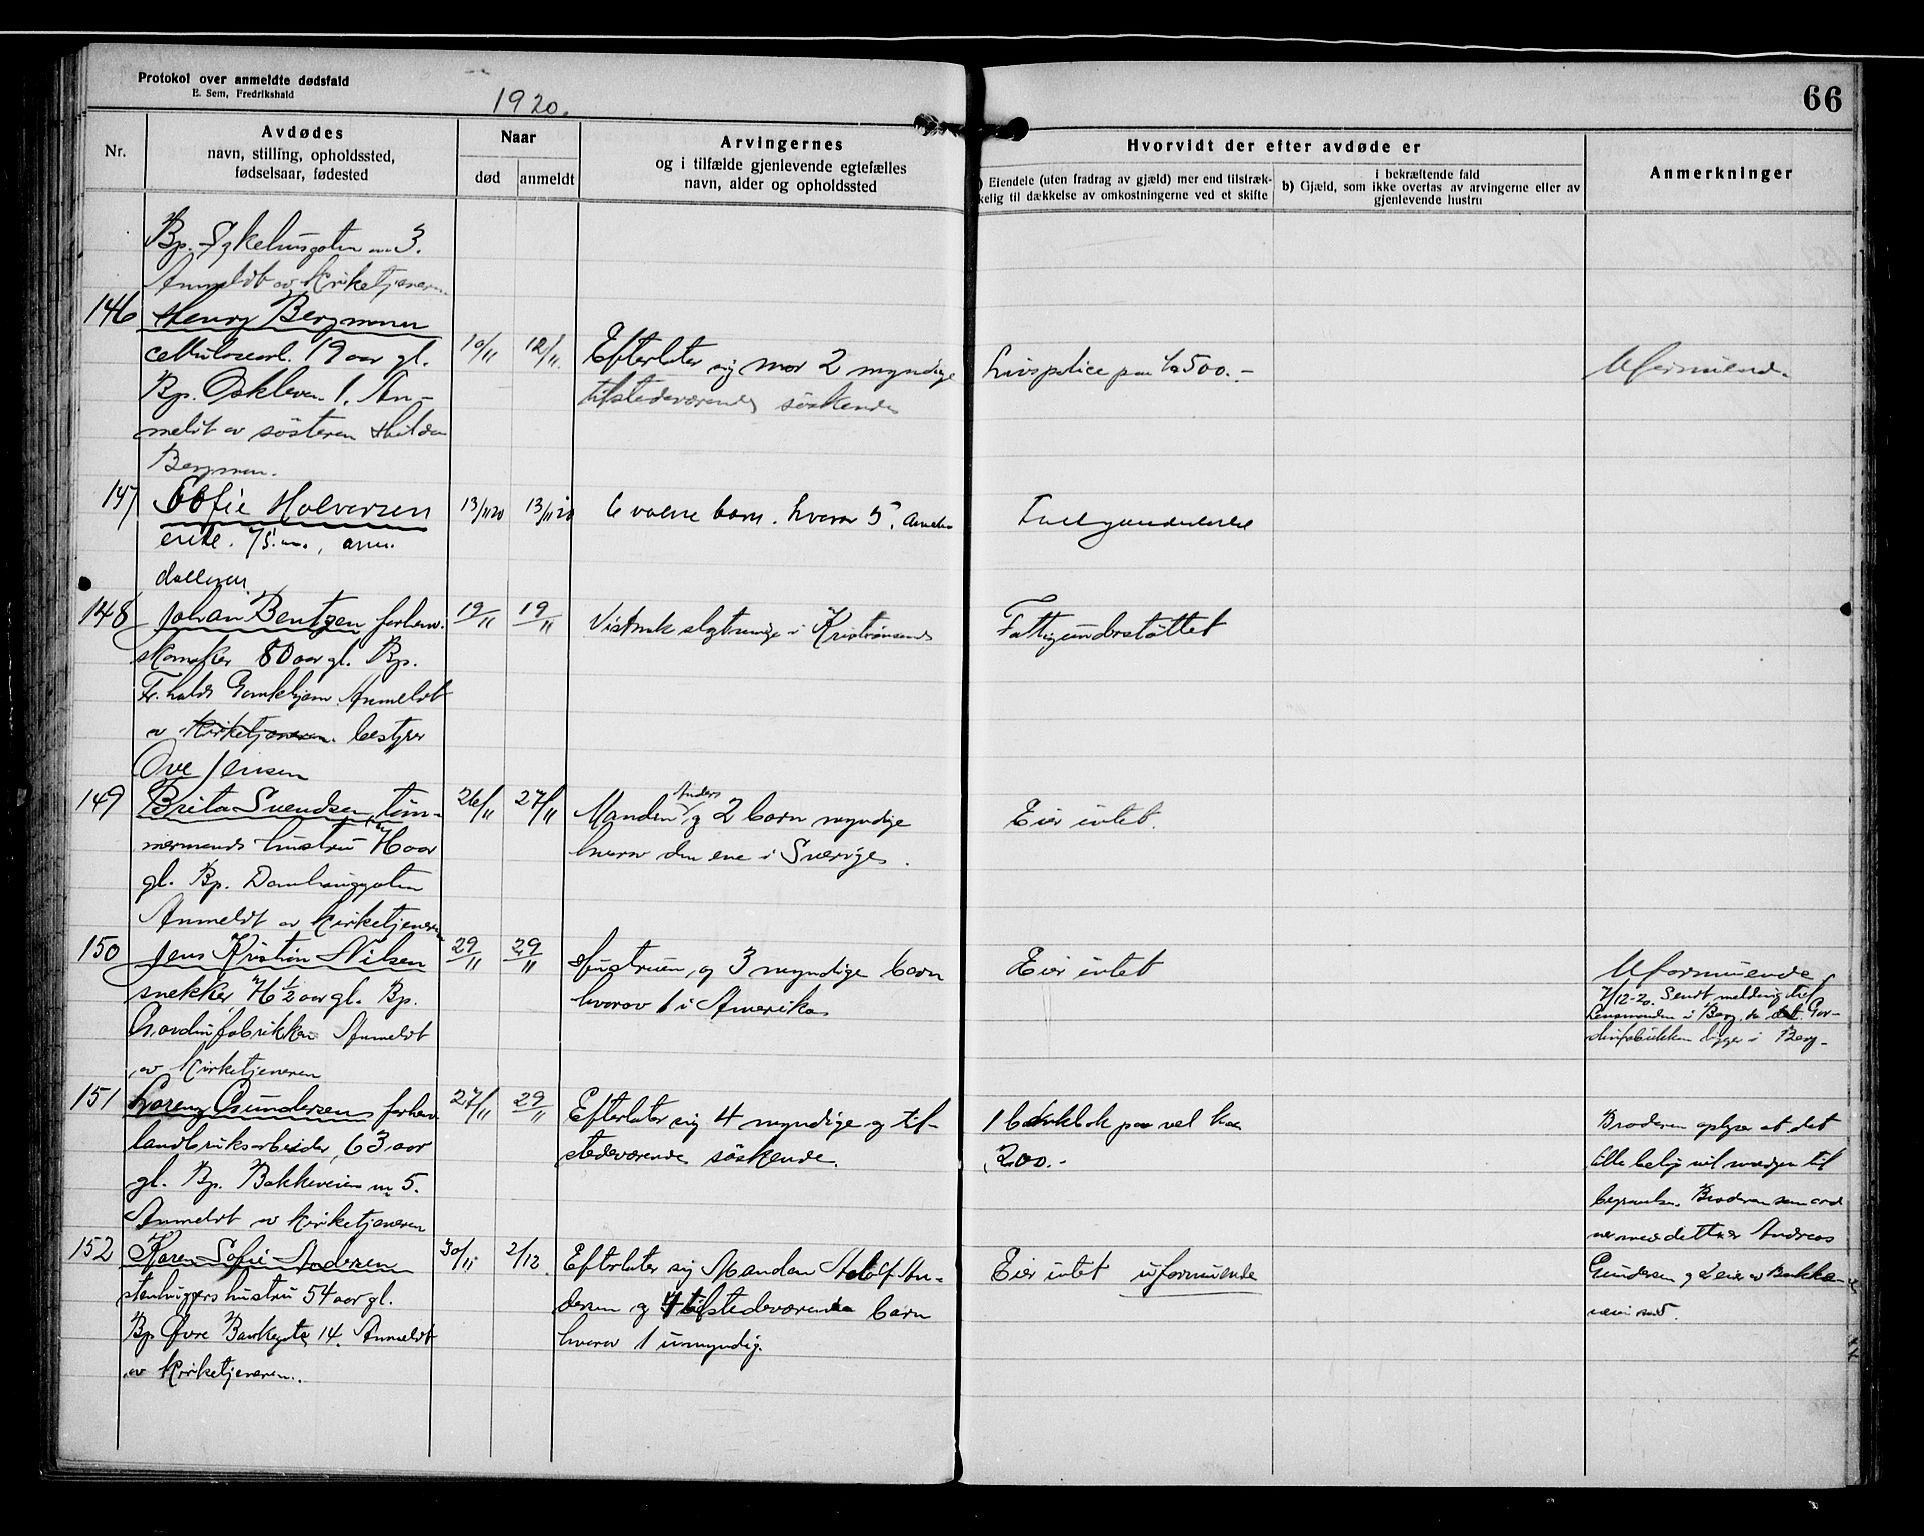 Protokol over anmeldte dødsfald
E. Sem, Fredrikshald
1920.
66
Nr.
Avdødes
navn, stilling, opholdssted,
fødselsaar, fødested
Naar
død
anmeldt
Arvingernes
og i tilfælde gjenlevende egtefælles
navn, alder og opholdssted
Hvorvidt der efter avdøde er
) Eiendele (uten fradrag av gjæld) mer end tilstræk-
kelig til dækkelse av omkostningerne ved et skifte
i bekræftende fald
b) Gjæld, som ikke overtas av arvingerne eller av
gjenlevende hustru
Anmerkninger
Bp. Sykehusgaten no 3.
Anmeldt av Kirketjeneren.
146
Henry Bergman
cellulosearb. 19 aar gl.
Bp. Oskleven 1. An-
meldt av søsteren Hilda
Bergman.
10/11
12/11.
Efterlater sig mor 2 myndige
tilstedeværende søskende
Livspolice paa kr 500.-
Uformuend.
147
Sofie Halversen
enke. 75 aar,
13/11 20
13/11 20
6 voksne barn. hvorav 5 i
148
Johan Bentzen forhenv.
skomaker 80 aar gl. Bp.
Fr.halds Gamlehjem. Anmeldt
av Kirketjeneren. bestyrer
Ove Jensen
19/11
19/11
Vistnok slegtninge i Kristiansand
Fattigunderstøttet
149
Brita Svendsen, tøm-
mermands hustru aar
gl. Bp. Damhauggaten
Anmeldt av Kirketjeneren
26/11
27/11
Anders
Manden og 2 barn myndige
hvorav den ene i Sverige.
Eier intet.
150
Jens Kristian Nilsen
snekker, 76 1/2 aar gl. Bp.
Gardinfabrikken Anmeldt
av Kirketjeneren
29/11
29/11
Hustruen, og 3 myndige barn
hvorav 1 i Amerika
Eier intet
Uformuende
7/12-20. Sendt melding til
Lensmanden i Berg, da det Gar-
dinfabrikken ligger i Berg-
151
Lorenz Gundersen forhenv.
landbruksarbeider, 63 aar
gl. Bp. Bakkeveien no 5.
Anmeldt av Kirketjeneren
27/11
29/11
Efterlater sig 4 myndige og til-
stedeværende søskende.
1 bankbok paa vel kr
200.-
Broderen oplyser at det
lille beløp vil medgaa til
begravelse. Broderen som ord
ner med dette er Andreas
Gundersen og eier av Bakke-
veien no 5.
152
Karen Sofie Andersen
stenhuggers hustru 54 aar gl.
Bp Øvre Bankegate 14. Anmeldt
av Kirketjeneren.
30/11
2/12.
Efterlater sig Manden Adolf An-
dersen og 4 tilstedeværende barn
hvorav 1 umyndig.
Eier intet uformuende